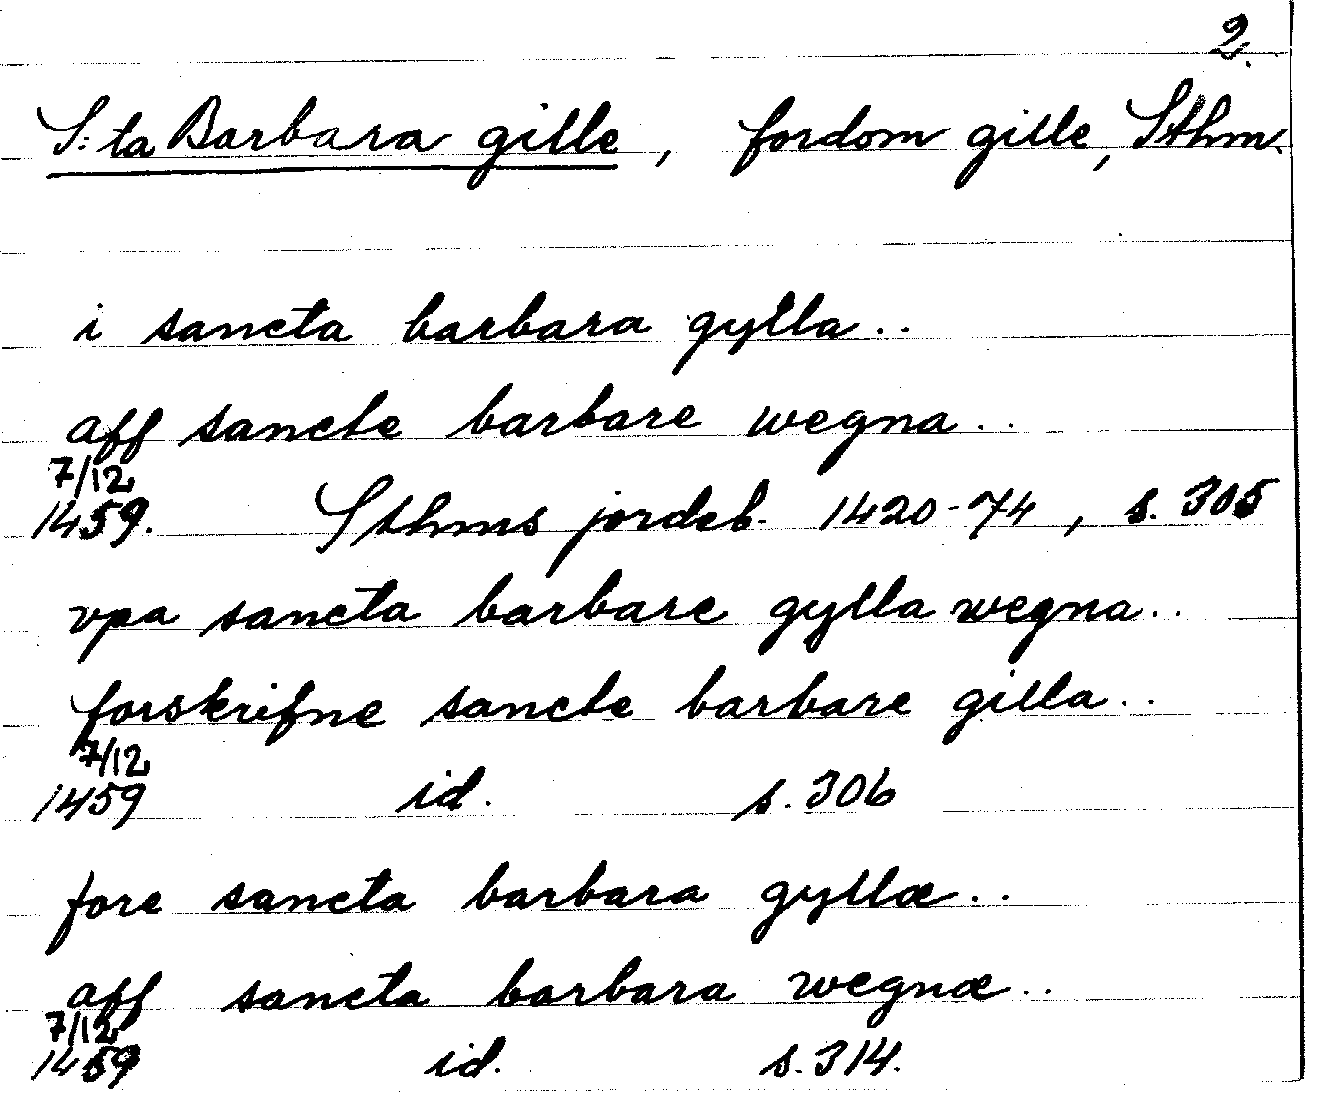 2.
S:ta Barbara gille, fordom gille, Sthm.
i sancta barbara gylla..
aff sancte barbare wegna..
7/12
1459. Sthms jordeb. 1420-74, s. 305
vpa sancta barbare gylla wegna..
forskrifne sancte barbare gilla..
7/12
1459 id. s. 306
fore sancta barbara gyllæ..
aff sancta barbara wegnæ..
7/12
1459 id. s. 314.